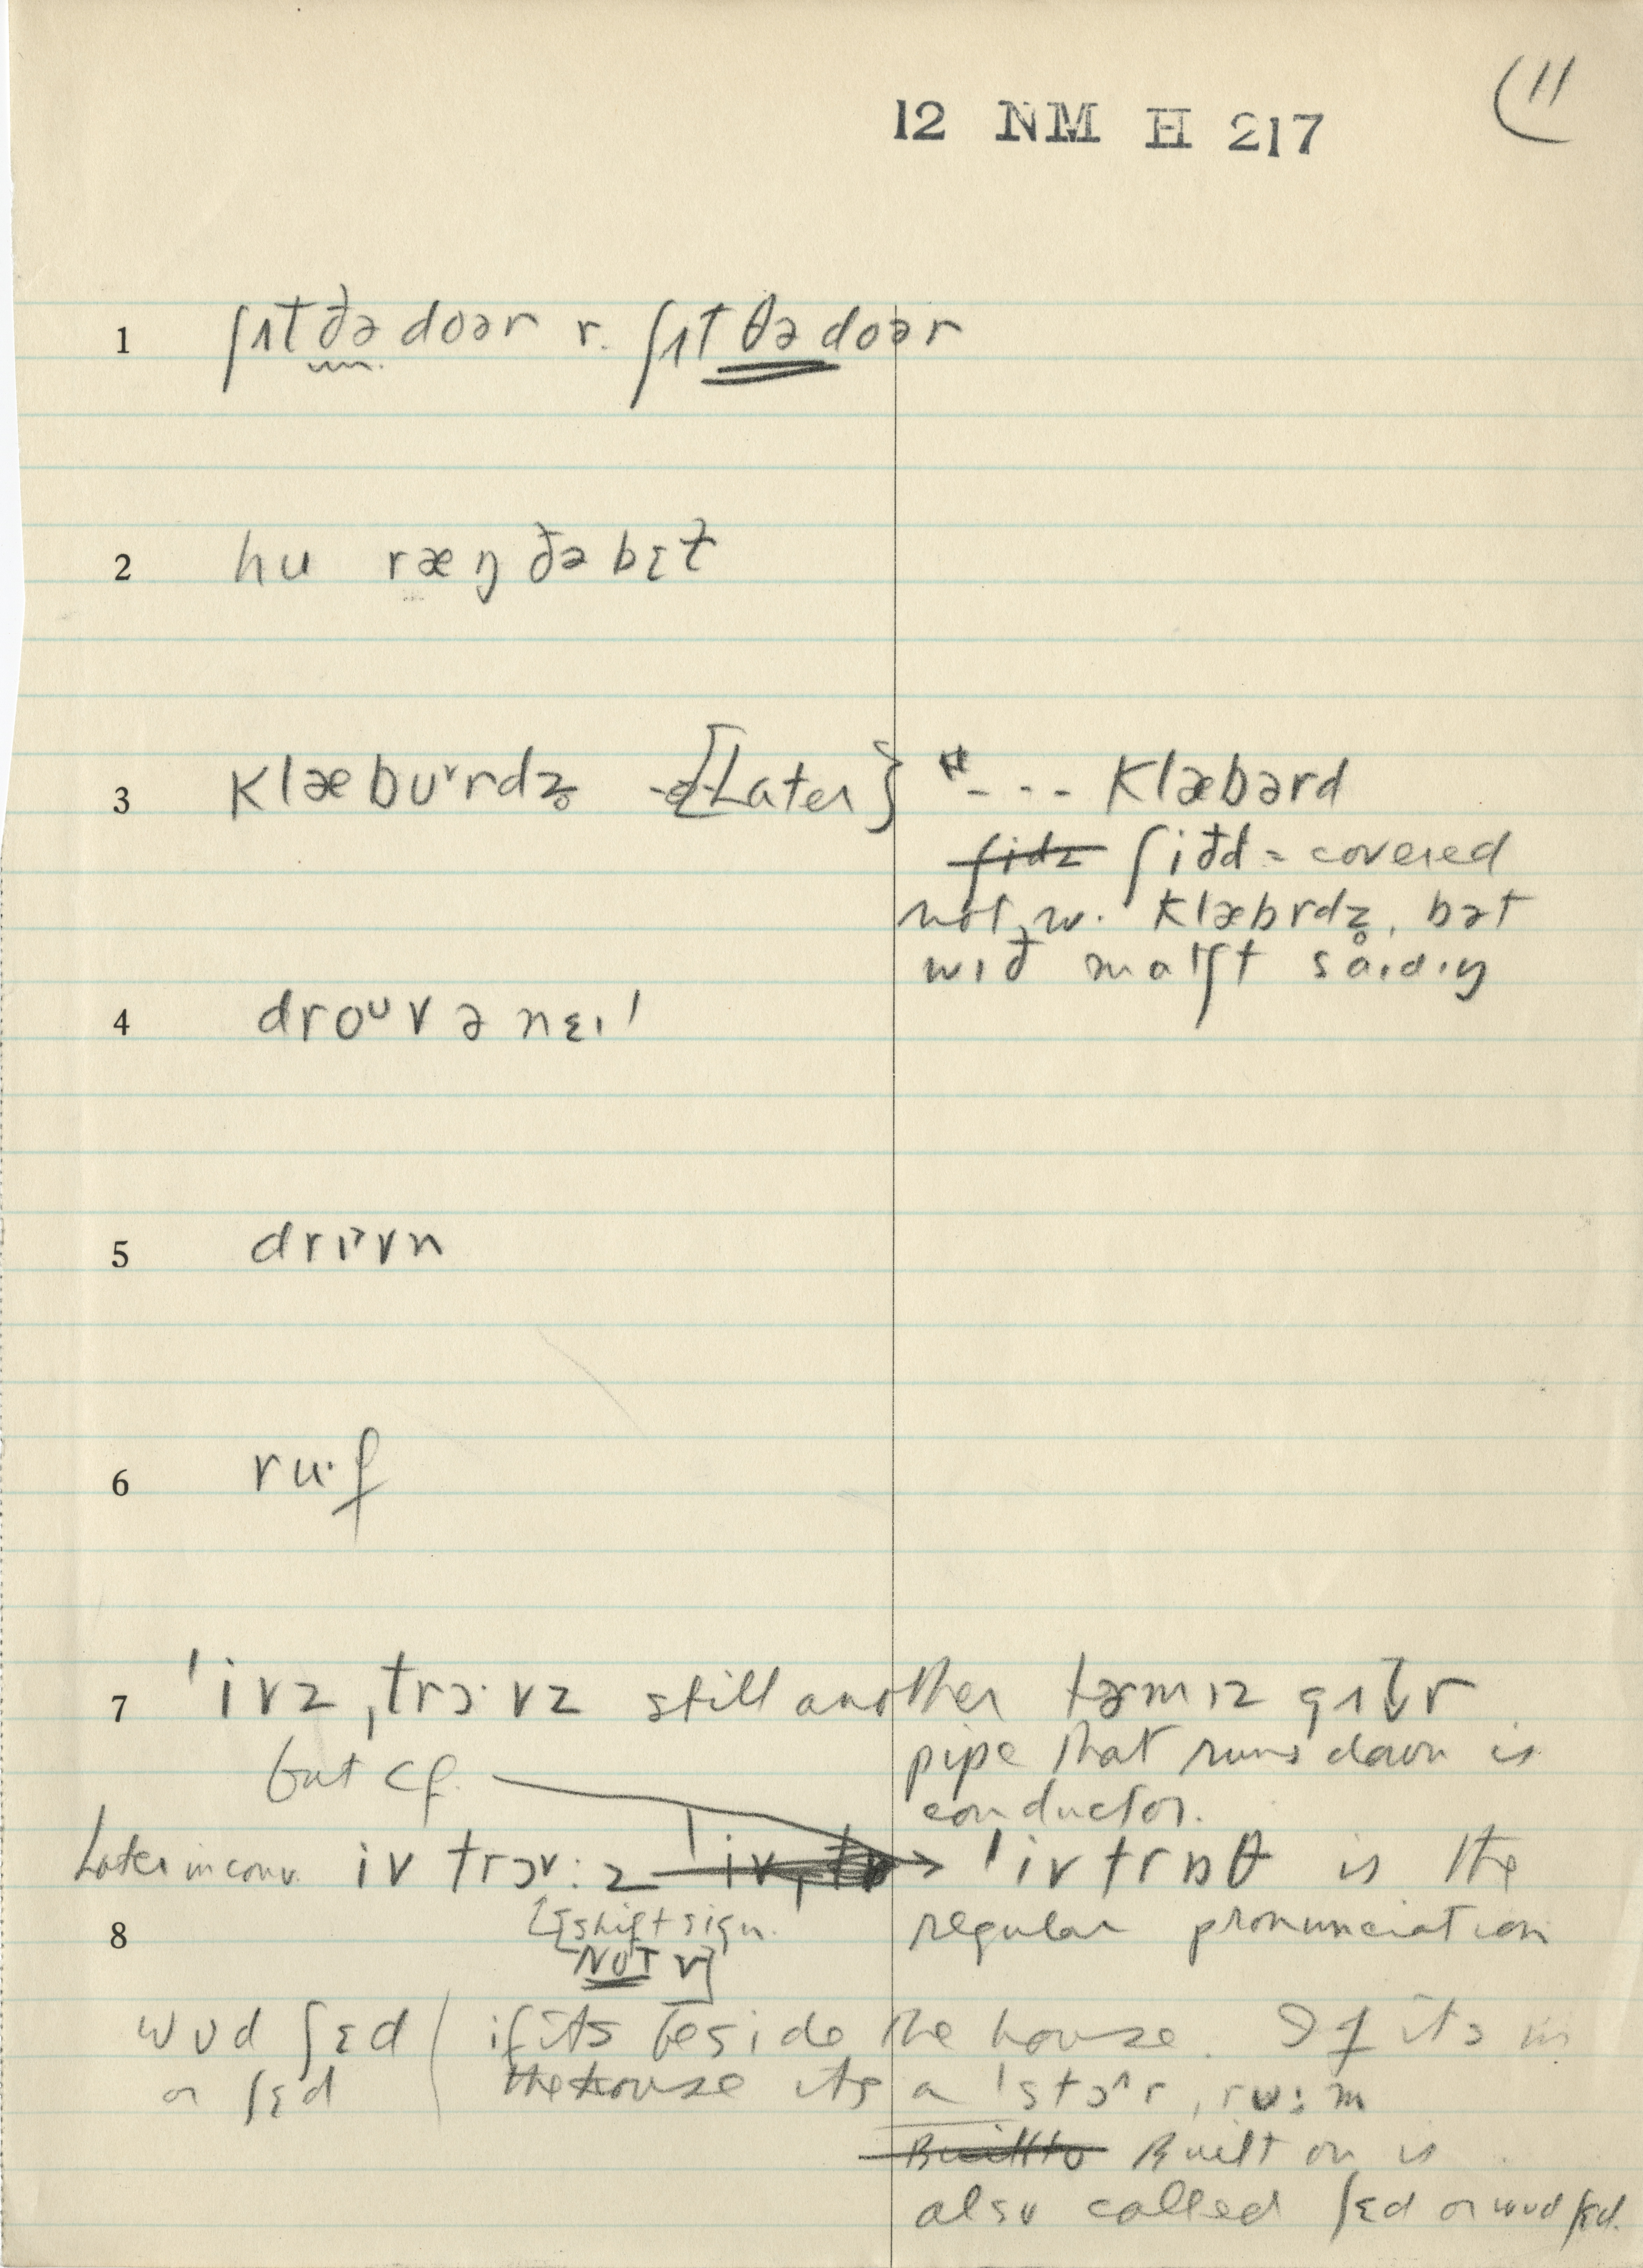 (11
12 NM H 217
1 ʃɪt ðə doər r. ʃɪt θə doər
2 hu ræŋ ðə bɛɫ
3 klæbʊ˅rdz̥ [Later] "--- klæbərd
ʃidz ʃiðd = covered
not w. klæbrdz̥, bət
wɪð maɪʃt såɪdɪŋ
4 droᵘv ə nɛɪl
5 drɪvn
6 ru·f
7 ˈivz ˌtrɔ·vz still another tərm ɪz gʌt̬r
but cf. pipe that runs down is
conductor.
Later in conv. iv trɔ˅:z ˈiv ˌtr → ˈivtrɒθ is the
8 [shift sign. regular pronunciation
NOT v]
wʊd ʃɛd ( if its beside the house. If its in
or ʃɛd ( the house its a ˈstɔ˄r ˌru:m
Built to Built on is
also called ʃɛd or wʊd ʃɛd.